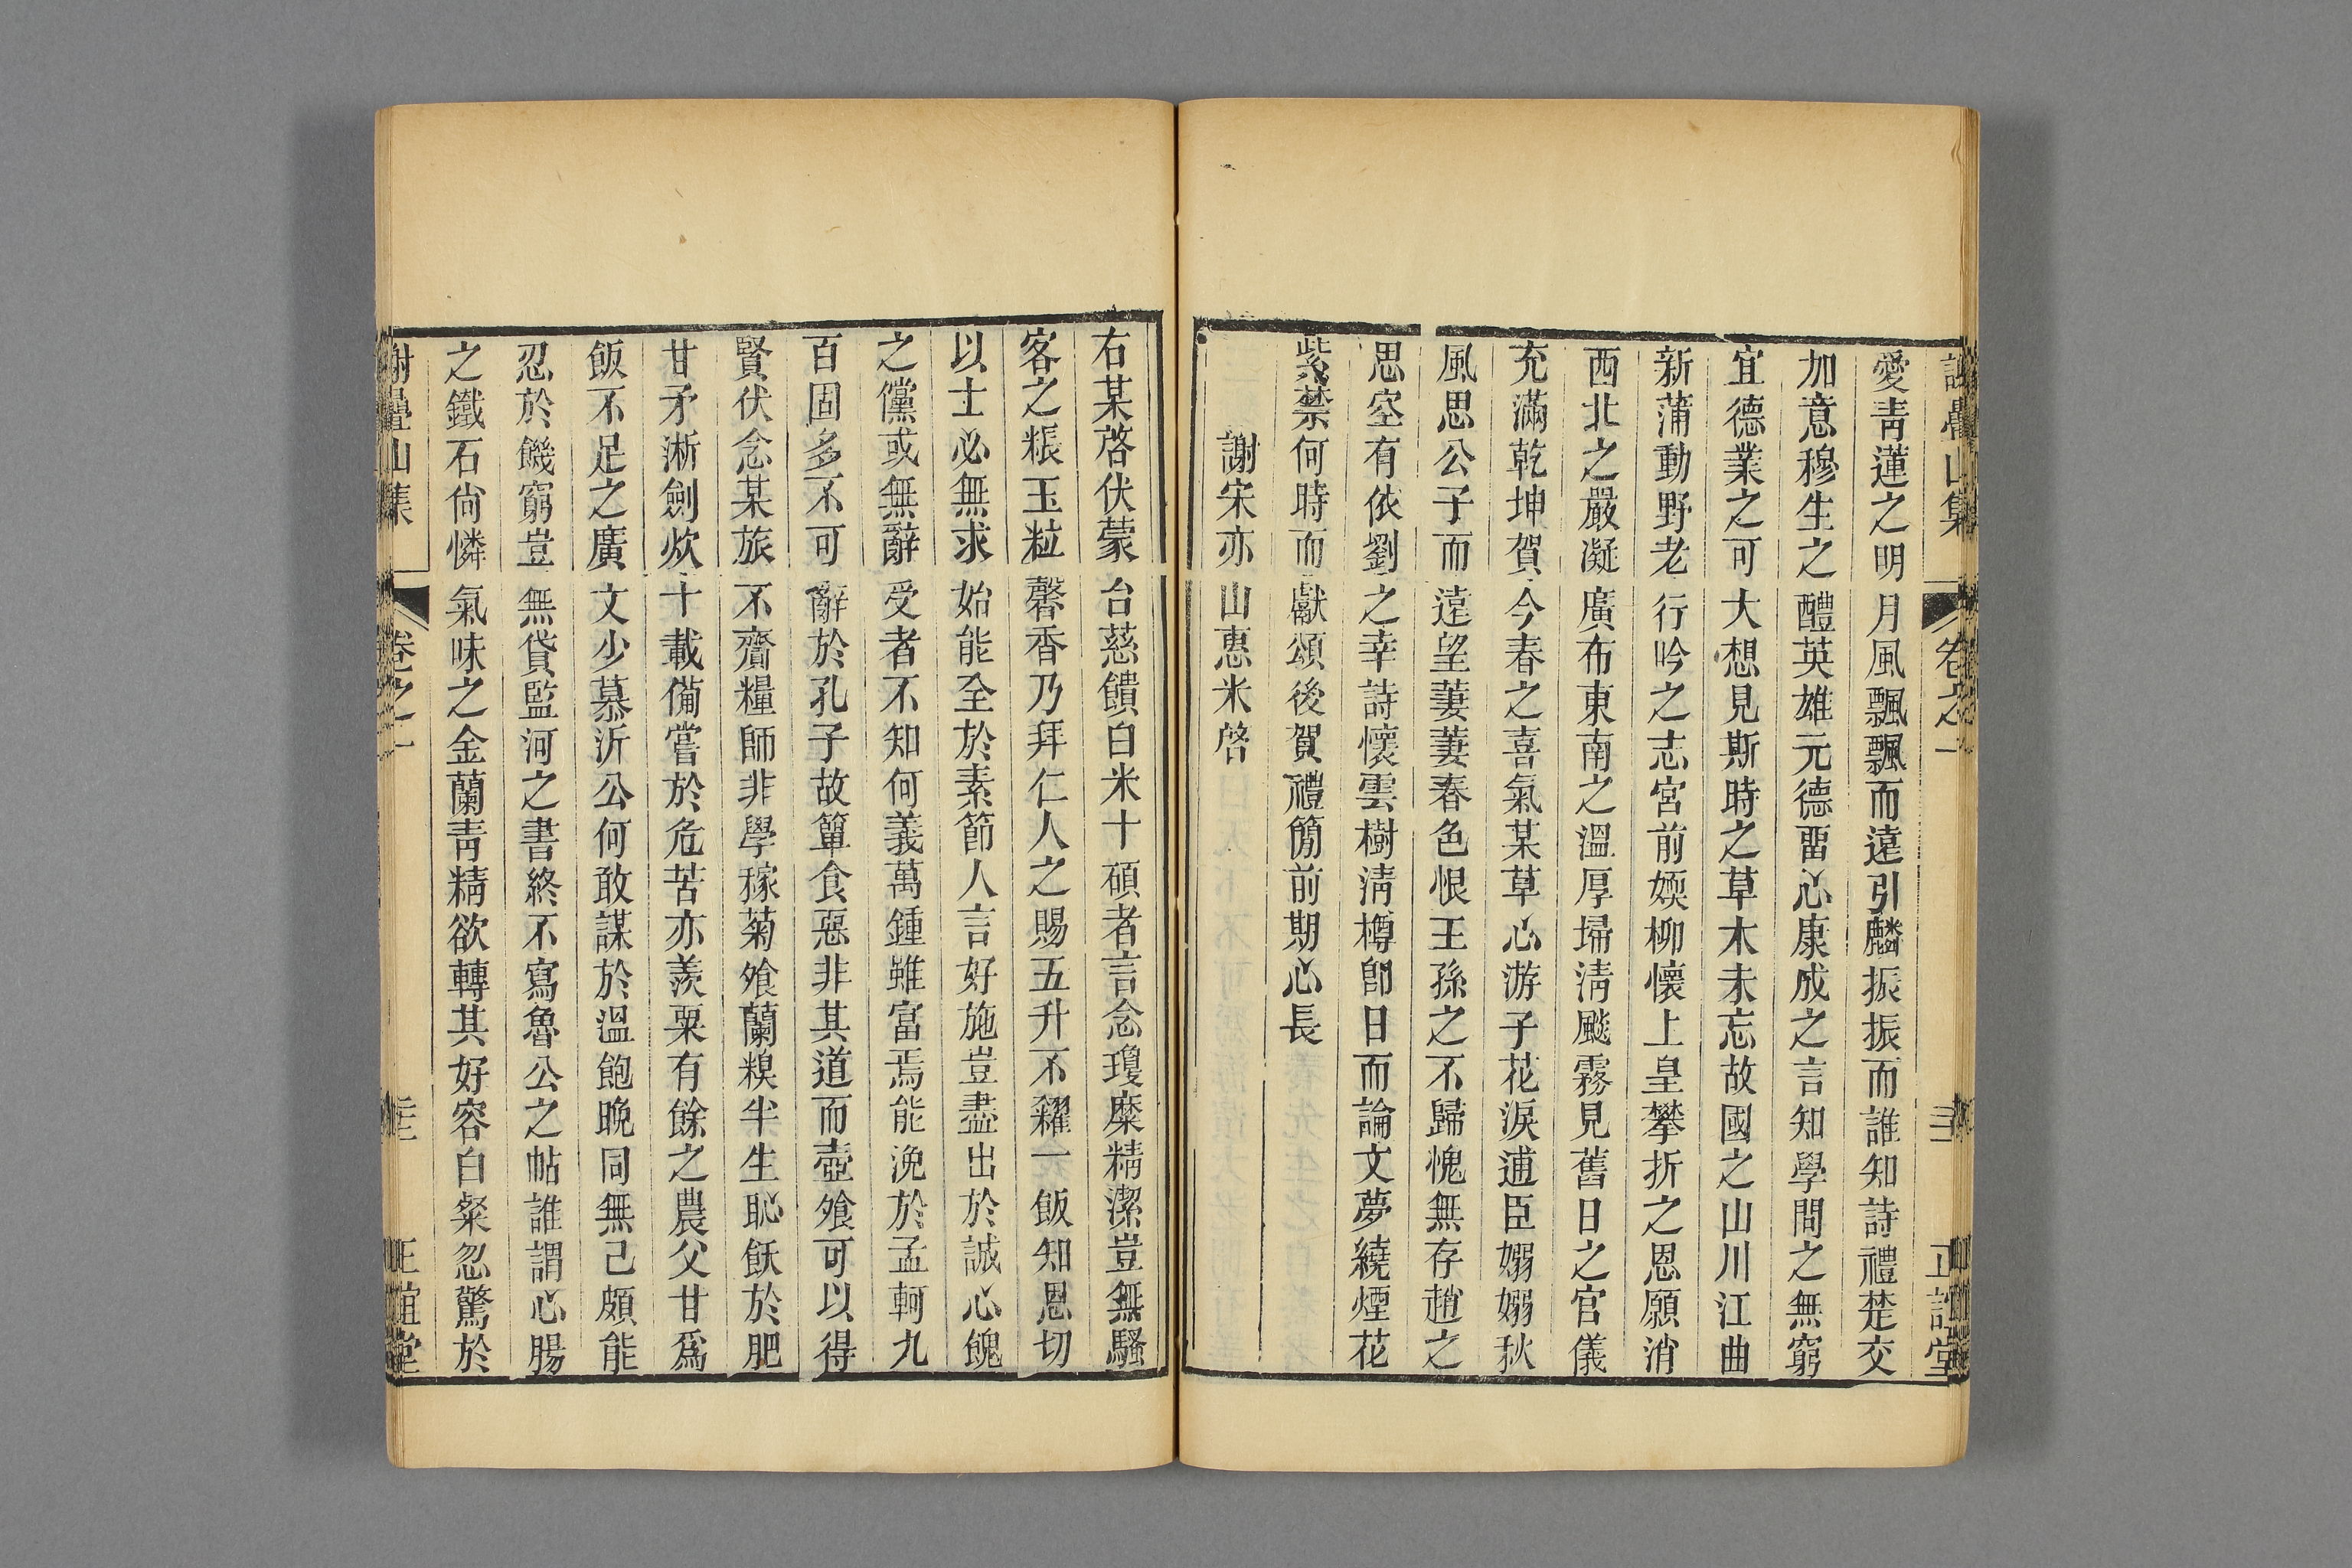 愛青蓮之明月風飄飄而遠引麟振振而誰知詩禮楚交
加意穆生之醴英雄元德畱心康成之言知學問之無窮
宜德業之可大想見斯時之草木未忘故國之山川江曲
新蒲動野老行吟之志宮前媆柳懷上皇攀折之恩願消
西北之嚴凝廣布東南之溫厚埽淸颷霧見舊日之官儀
充滿乾坤賀今春之喜氣某草心游子花淚逋臣嫋嫋秋
風思公子而遠望萋萋春色恨王孫之不歸愧無存趙之
思空有依劉之幸詩懷雲樹淸樽卽日而論文夢繞煙花
紫禁何時而獻頌後賀禮簡前期心長
謝宋亦山惠米啓
右某啓伏蒙台慈饋白米十碩者言念瓊糜精潔豈無騷
客之粻玉粒馨香乃拜仁人之賜五升不糴一飯知恩切
以士必無求始能全於素節人言好施豈盡出於誠心餽
之儻或無辭受者不知何義萬鍾雖富焉能浼於孟軻九
百固多不可辭於孔子故簞食惡非其道而壺飧可以得
賢伏念某旅不齎糧師非學稼菊飧蘭糗半生恥飫於肥
甘矛淅劍炊十載備嘗於危苦亦羨粟有餘之農父甘爲
飯不足之廣文少慕沂公何敢謀於溫飽晩同無己頗能
忍於饑窮豈無貸監河之書終不寫魯公之帖誰謂心腸
之鐵石尙憐氣味之金蘭靑精欲轉其好容白粲忽驚於
謝疊山集 卷之一 正誼堂